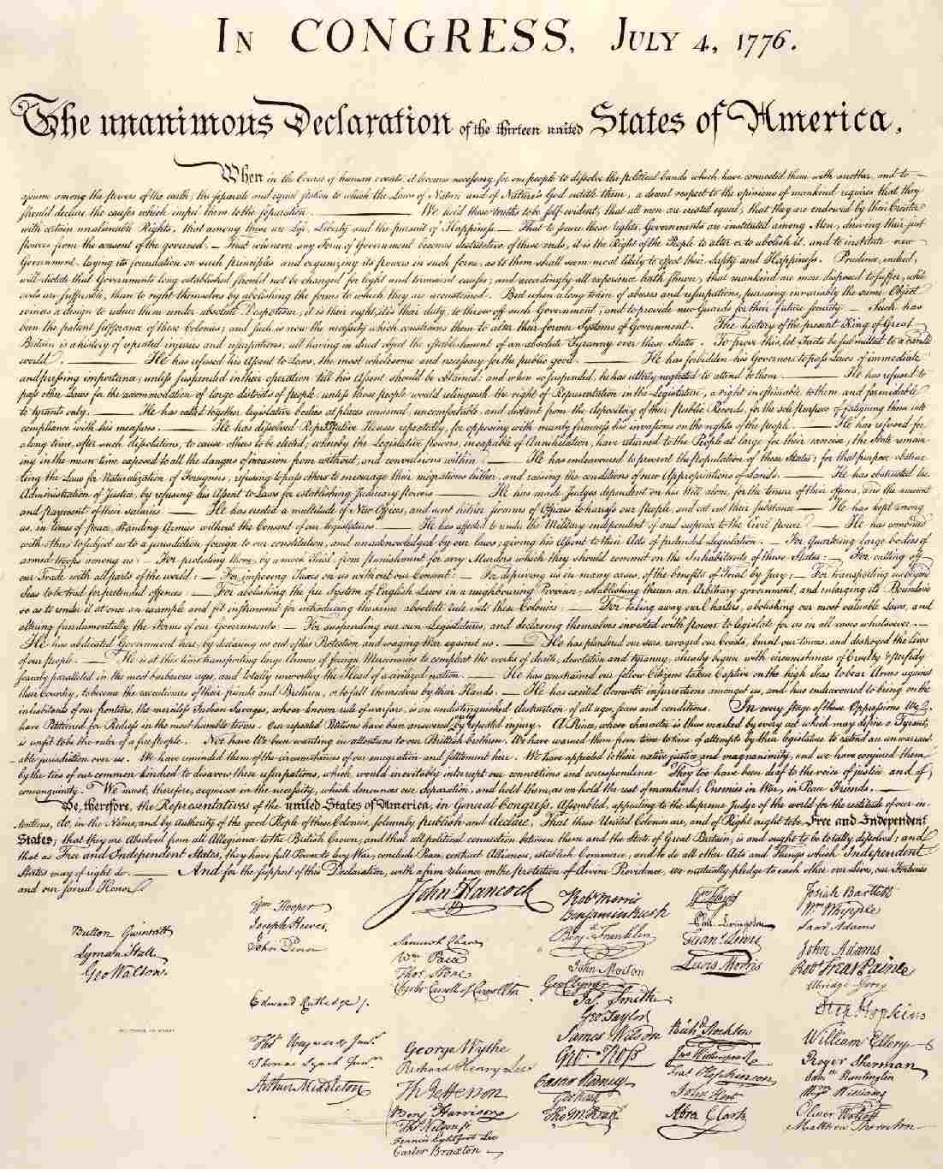 In CONGRESS, July 4, 1776.
The unanimous Declaration of the thirteen united States of America,
When in the Course of human events, it becomes necessary for one people to dissolve the political bands which have connected them with another, and to
assume among the powers of the earth, the separate and equal station to which the Laws of Nature and of Nature's God entitle them, a decent respect to the opinions of mankind requires that they
should declare the causes which impel them to the separation. — We hold these truths to be self-evident, that all men are created equal, that they are endowed by their Creator
with certain unalienable Rights, that among these are Life, Liberty and the pursuit of Happiness. — That to secure these rights, Governments are instituted among Men, deriving their just
powers from the consent of the governed, — That whenever any Form of Government becomes destructive of these ends, it is the Right of the People to alter or to abolish it, and to institute new
Government, laying its foundation on such principles and organizing its powers in such form, as to them shall seem most likely to effect their Safety and Happiness. Prudence, indeed,
will dictate that Governments long established should not be changed for light and transient causes; and accordingly all experience hath shewn, that mankind are more disposed to suffer, while
evils are sufferable, than to right themselves by abolishing the forms to which they are accustomed. But when a long train of abuses and usurpations, pursuing invariably the same Object
evinces a design to reduce them under absolute Despotism, it is their right, it is their duty, to throw off such Government, and to provide new Guards for their future security. — Such has
been the patient sufferance of these Colonies; and such is now the necessity which constrains them to alter their former Systems of Government. The history of the present King of Great
Britain is a history of repeated injuries and usurpations, all having in direct object the establishment of an absolute Tyranny over these States. To prove this, let Facts be submitted to a candid
world. — He has refused his Assent to Laws, the most wholesome and necessary for the public good. — He has forbidden his Governors to pass Laws of immediate
and pressing importance, unless suspended in their operation till his Assent should be obtained; and when so suspended, he has utterly neglected to attend to them. — He has refused to
pass other Laws for the accommodation of large districts of people, unless those people would relinquish the right of Representation in the Legislature, a right inestimable to them and formidable
to tyrants only. — He has called together legislative bodies at places unusual, uncomfortable, and distant from the depository of their Public Records, for the sole purpose of fatiguing them into
compliance with his measures. — He has dissolved Representative Houses repeatedly, for opposing with manly firmness his invasions on the rights of the people. — He has refused for
a long time, after such dissolutions, to cause others to be elected; whereby the Legislative powers, incapable of Annihilation, have returned to the People at large for their exercise; the State remain-
ing in the mean time exposed to all the dangers of invasion from without, and convulsions within. — He has endeavoured to prevent the population of these States; for that purpose obstruc-
ting the Laws for Naturalization of Foreigners; refusing to pass others to encourage their migrations hither, and raising the conditions of new Appropriations of Lands. — He has obstructed the
Administration of Justice, by refusing his Assent to Laws for establishing Judiciary powers. — He has made Judges dependent on his Will alone, for the tenure of their offices, and the amount
and payment of their salaries. — He has erected a multitude of New Offices, and sent hither swarms of Officers to harrass our people, and eat out their substance. — He has kept among
us, in times of peace, Standing Armies without the Consent of our legislatures. — He has affected to render the Military independent of and superior to the Civil power. — He has combined
with others to subject us to a jurisdiction foreign to our constitution, and unacknowledged by our laws; giving his Assent to their Acts of pretended Legislation: — For quartering large bodies of
armed troops among us: — For protecting them, by a mock Trial, from punishment for any Murders which they should commit on the Inhabitants of these States: — For cutting off
our Trade with all parts of the world: — For imposing Taxes on us without our Consent: — For depriving us in many cases, of the benefits of Trial by Jury: — For transporting us beyond
Seas to be tried for pretended offences — For abolishing the free System of English Laws in a neighbouring Province, establishing therein an Arbitrary government, and enlarging its Boundaries
so as to render it at once an example and fit instrument for introducing the same absolute rule into these Colonies: — For taking away our Charters, abolishing our most valuable Laws, and
altering fundamentally the Forms of our Governments: — For suspending our own Legislatures, and declaring themselves invested with power to legislate for us in all cases whatsoever. —
He has abdicated Government here, by declaring us out of his Protection and waging War against us. — He has plundered our seas, ravaged our Coasts, burnt our towns, and destroyed the lives
of our people. — He is at this time transporting large Armies of foreign Mercenaries to compleat the works of death, desolation and tyranny, already begun with circumstances of Cruelty & perfidy
scarcely paralleled in the most barbarous ages, and totally unworthy the Head of a civilized nation. — He has constrained our fellow Citizens taken Captive on the high Seas to bear Arms against
their Country, to become the executioners of their friends and Brethren, or to fall themselves by their Hands. — He has excited domestic insurrections amongst us, and has endeavoured to bring on the
inhabitants of our frontiers, the merciless Indian Savages, whose known rule of warfare, is an undistinguished destruction of all ages, sexes and conditions. In every stage of these Oppressions We
have Petitioned for Redress in the most humble terms: Our repeated Petitions have been answered only by repeated injury. A Prince, whose character is thus marked by every act which may define a Tyrant,
is unfit to be the ruler of a free people. Nor have We been wanting in attentions to our Brittish brethren. We have warned them from time to time of attempts by their legislature to extend an unwarrant-
able jurisdiction over us. We have reminded them of the circumstances of our emigration and settlement here. We have appealed to their native justice and magnanimity, and we have conjured them
by the ties of our common kindred to disavow these usurpations, which, would inevitably interrupt our connections and correspondence. They too have been deaf to the voice of justice and of
consanguinity. We must, therefore, acquiesce in the necessity, which denounces our Separation, and hold them, as we hold the rest of mankind, Enemies in War, in Peace Friends. —
We, therefore, the Representatives of the united States of America, in General Congress, Assembled, appealing to the Supreme Judge of the world for the rectitude of our in-
tentions, do, in the Name, and by Authority of the good People of these Colonies, solemnly publish and declare, That these United Colonies are, and of Right ought to be Free and Independent
States; that they are Absolved from all Allegiance to the British Crown, and that all political connection between them and the State of Great Britain, is and ought to be totally dissolved; and
that as Free and Independent States, they have full Power to levy War, conclude Peace, contract Alliances, establish Commerce, and to do all other Acts and Things which Independent
States may of right do. — And for the support of this Declaration, with a firm reliance on the protection of divine Providence, we mutually pledge to each other our Lives, our Fortunes
and our sacred Honor.
Button Gwinnett
Lyman Hall
Geo Walton.
Wm Hooper
Joseph Hewes,
John Penn
Edward Rutledge /.
Thos Heyward Junr.
Thomas Lynch Junr.
Arthur Middleton
John Hancock
Samuel Chase
Wm Paca
Thos Stone
Charles Carroll of Carrollton
George Wythe
Richard Henry Lee
Th Jefferson
Benj Harrison
Thos Nelson jr.
Francis Lightfoot Lee
Carter Braxton
Robt Morris
Benjamin Rush
Benj. Franklin
John Morton
Geo Clymer
Jas. Smith
Geo Taylor
James Wilson
Geo. Ross
Caesar Rodney
Geo Read
Tho M:Kean
Wm Floyd
Phil. Livingston
Fran's Lewis
Lewis Morris
Richd Stockton
Jno Witherspoon
Fras Hopkinson
John Hart
Abra Clark
Josiah Bartlett
Wm Whipple
Saml Adams
John Adams
Robt Treat Paine
Elbridge Gerry
Step Hopkins
William Ellery
Roger Sherman
Saml Huntington
Wm Williams
Oliver Wolcott
Matthew Thornton